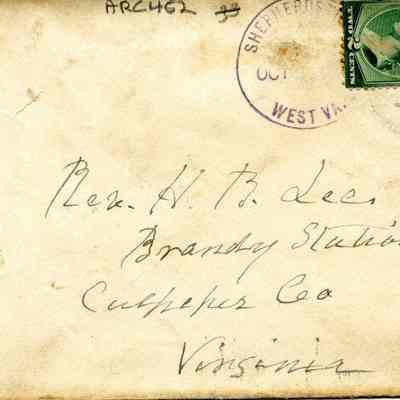 ARCH62 33
SHEPHERDS
OCT
WEST VA.
Rev. H. B. Lee
Brandy Statio
Culpeper Co
Virginia